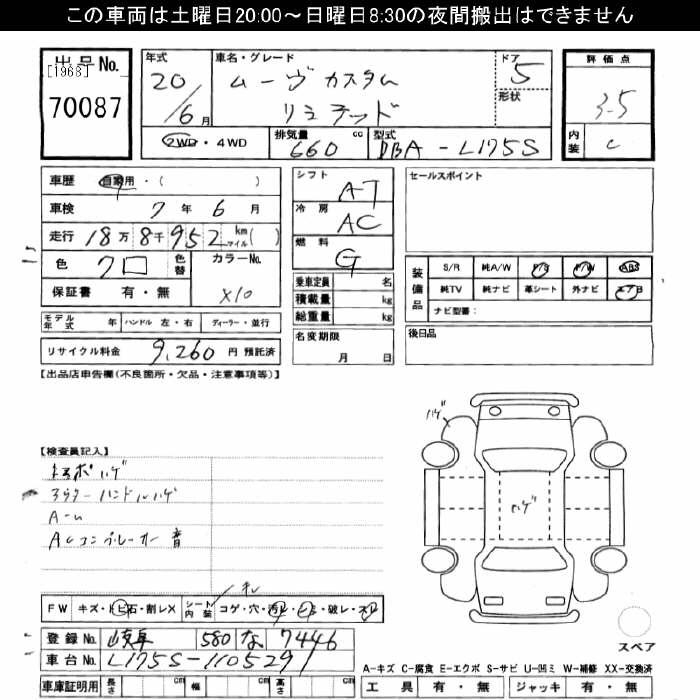 この車両は土曜日20:00～日曜日8:30の夜間搬出はできません
出品No. [1968] 70087
年式 20/6月
車名・グレード ムーヴ カスタム
リミテッド
ドア 5
形状
評価点 3.5
内装 C
2WD・4WD
排気量 660 cc
型式 DBA-L175S
車歴 自家用・( )
車検 7年 6月
走行 18万8千952 km マイル ( )
色 クロ 色替
カラーNo. X10
保証書 有・無
モデル年式 年 ハンドル 左・右 ディーラー・並行
リサイクル料金 9,260 円 預託済
シフト AT
冷房 AC
燃料 G
乗車定員 名
積載量 kg
総重量 kg
名変期限
月 日
セールスポイント
装備品 S/R 純A/W P/S P/W ABS
純TV 純ナビ 革シート 外ナビ エアB
ナビ型番:
後日品
【出品店申告欄(不良箇所・欠品・注意事項等)】
【検査員記入】
ハゲ
アウターハンドルハゲ
A-ム
ACコンプレーサー音
ハゲ
ハゲ
FW キズ・トビ石・割レX
シート内装 コゲ・穴・汚レ・シミ・破レ・スレ
登録No. 岐阜 580 な 7446
車台No. L175S-1105291
スペア
A-キズ C-腐食 E-エクボ S-サビ U-凹ミ W-補修 XX-交換済
車庫証明用 長さ cm 幅 cm 高さ cm
工具 有・無 ジャッキ 有・無